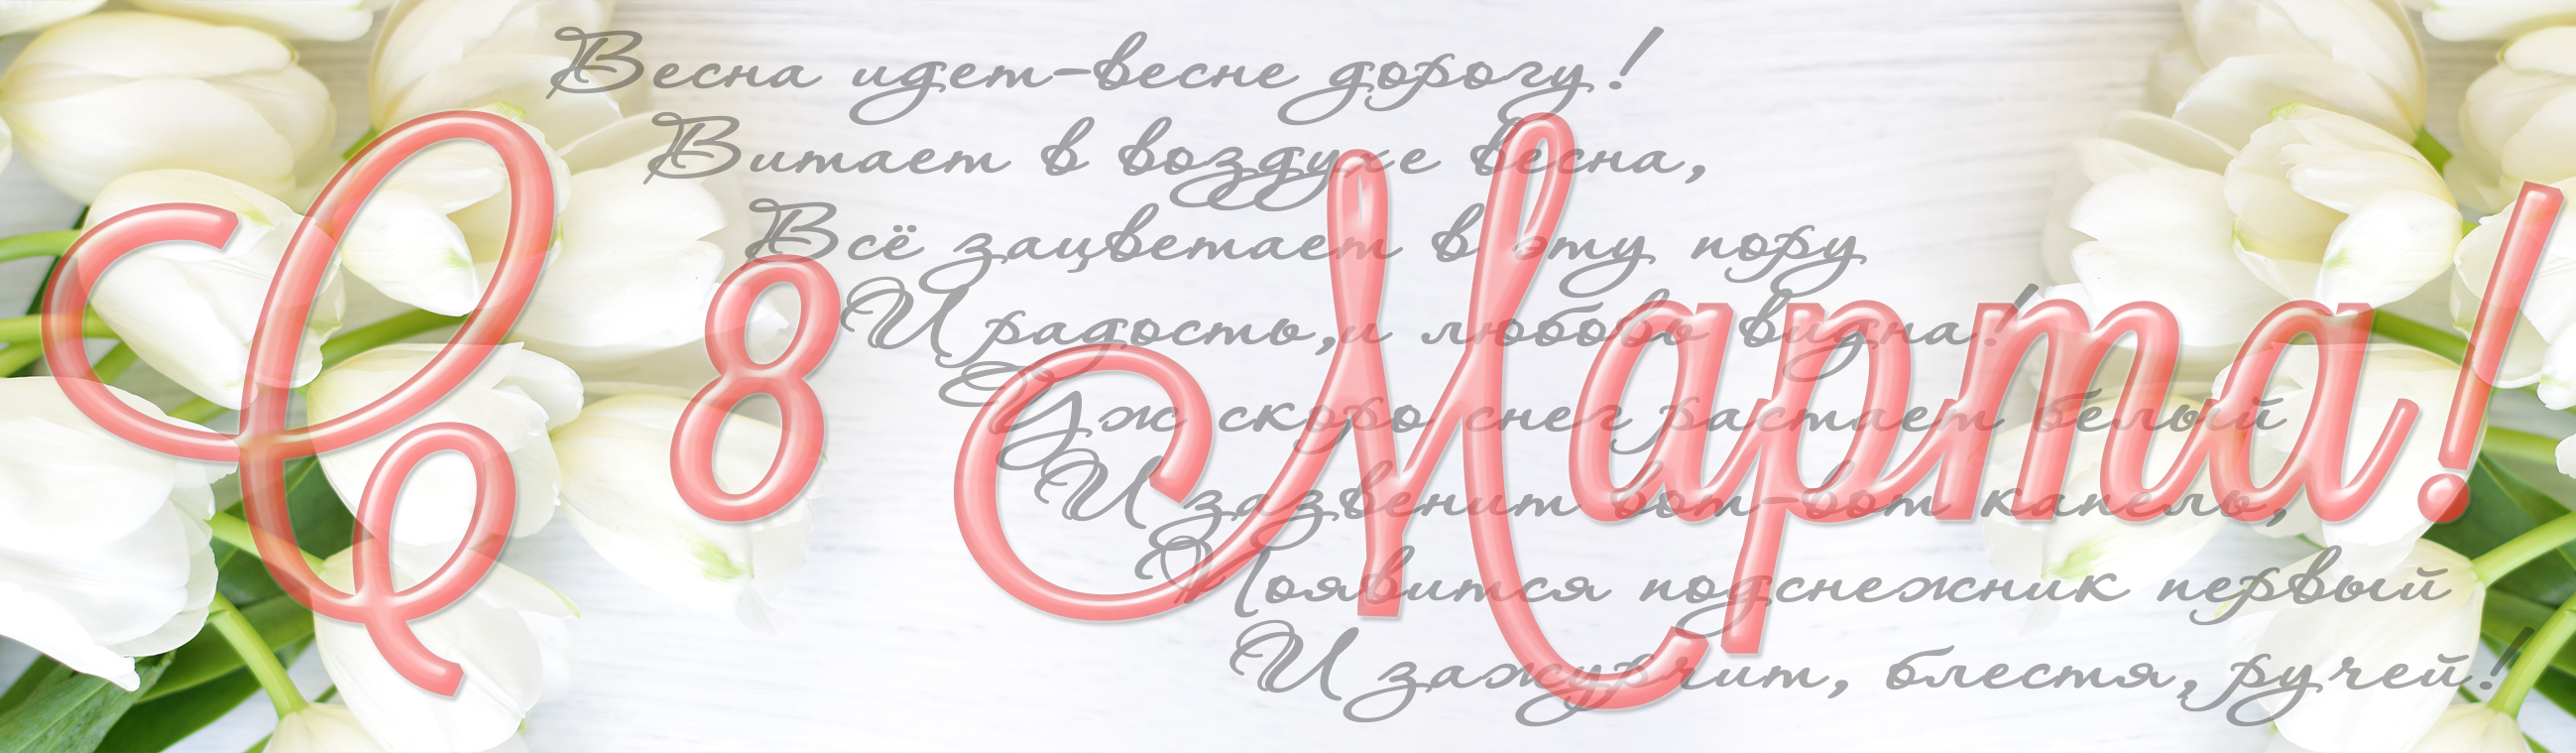 Весна идет-весне дорогу!
Витает в воздухе весна,
Всё зацветает в эту пору
И радость,и любовь видна!
Уж скоро снег растает белый
И зазвенит вот-вот капель,
Появится подснежник первый
И зажурчит, блестя, ручей!
С 8 Марта!